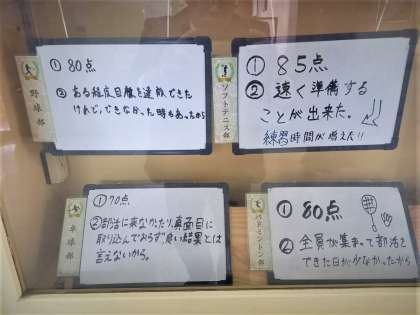 野球部
① 80点
② ある程度目標を達成できた
けれど、できなかった時もあったから
ソフトテニス部
① 85点
② 速く準備する
ことが出来た。
練習時間が増えた!!
卓球部
① 70点
② 部活に来なかったり、真面目に
取り込んでおらず、良い結果とは
言えないから。
バドミントン部
① 80点
② 全員が集まって部活を
できた日が少なかったから